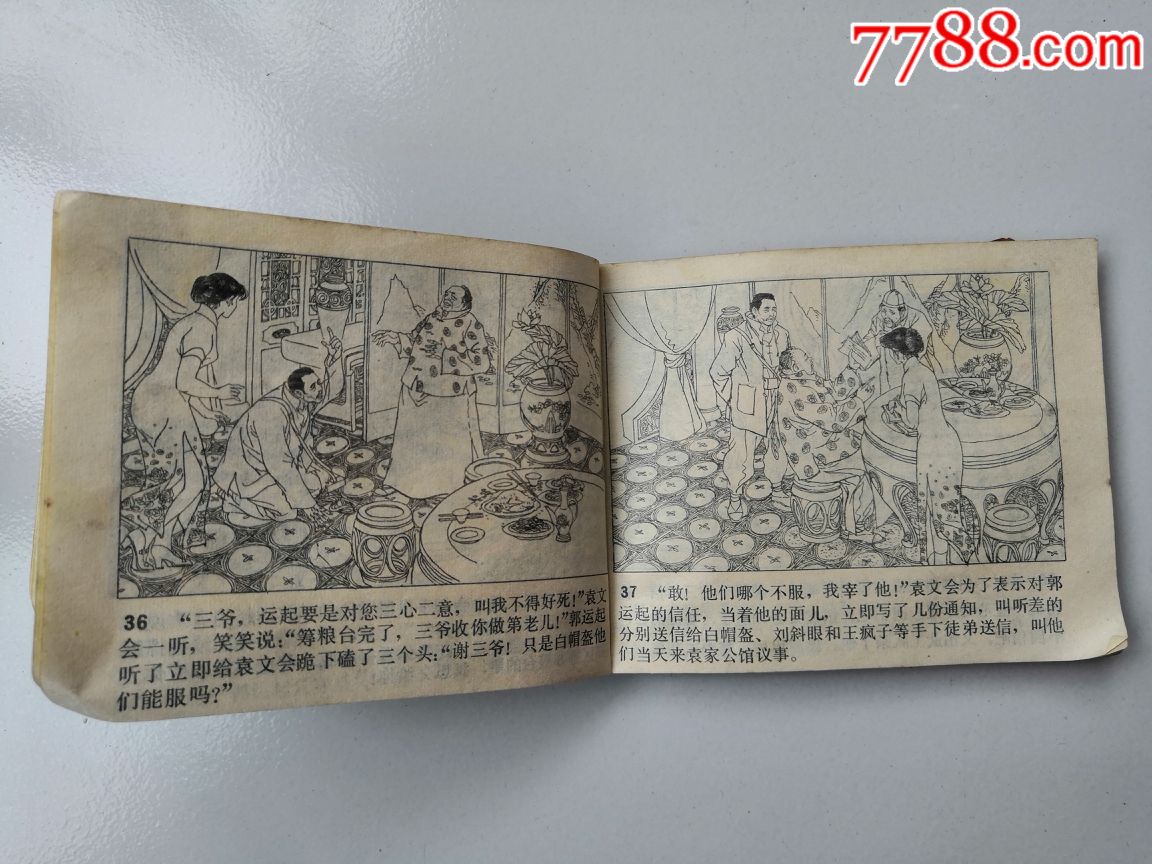 7788.com
36 “三爷，运起要是对您三心二意，叫我不得好死！”袁文
会一听，笑笑说：“筹粮台完了，三爷收你做第老儿！”郭运起
听了立即给袁文会跪下磕了三个头：“谢三爷！只是白帽盔他
们能服吗？”
37 “敢！他们哪个不服，我宰了他！”袁文会为了表示对郭
运起的信任，当着他的面儿，立即写了几份通知，叫听差的
分别送信给白帽盔、刘斜眼和王疯子等手下徒弟送信，叫他
们当天来袁家公馆议事。